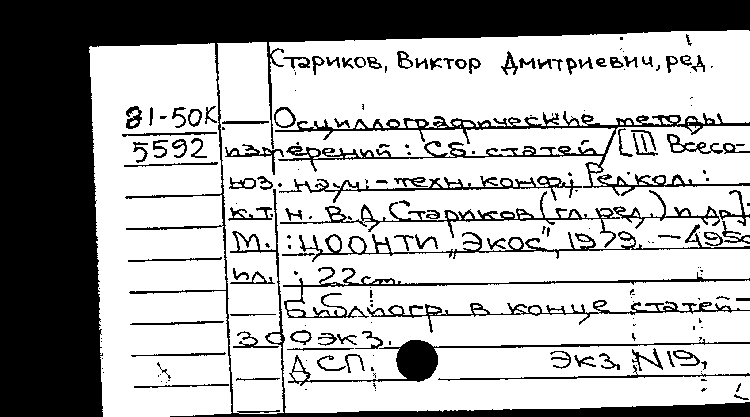 Стариков, Виктор Дмитриевич, ред.
81-50К Осциллографические методы
5592 измерений : Сб. статей / [III Всесо-
юз. науч.-техн. конф.; Редкол. :
к.т.н. В.Д. Стариков (гл. ред.) и др.];
М. : ЦООНТИ „Экос", 1979. - 495с
ил. ; 22см.
Библиогр. в конце статей. -
300экз.
ДСП. Экз. N19,